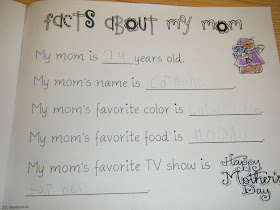 facts about my mom
My mom is 24 years old.
My mom's name is
My mom's favorite color is
My mom's favorite food is
My mom's favorite TV show is
Happy
Mother's
Day